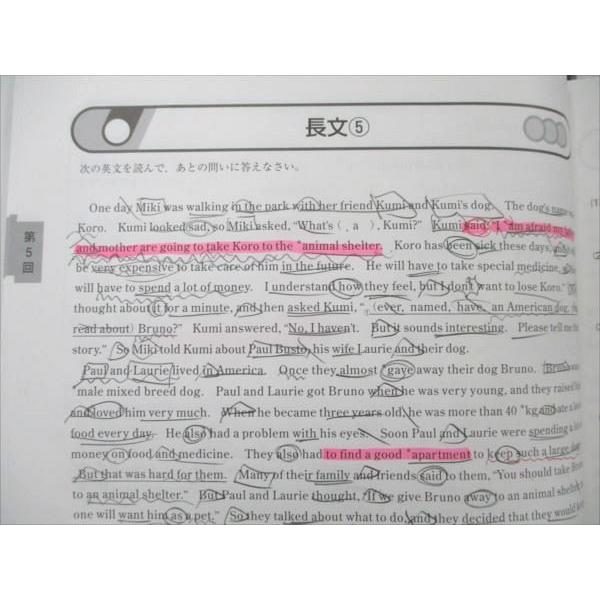 長文⑤
次の英文を読んで、あとの問いに答えなさい。
第5回
One day Miki was walking in the park with her friend Kumi and Kumi's dog. The dog's name
Koro. Kumi looked sad, so Miki asked, "What's ( a ), Kumi?" Kumi said, "I am afraid my
and mother are going to take Koro to the *animal shelter. Koro has been sick these days, and
be very expensive to take care of him in the future. He will have to take special medicine,
will have to spend a lot of money. I understand how they feel, but I don't want to lose Koro."
thought about it for a minute, and then asked Kumi, "(ever, named, have, an American dog,
read about) Bruno?" Kumi answered, "No, I haven't. But it sounds interesting. Please tell me
story." So Miki told Kumi about Paul Busto, his wife Laurie and their dog.
Paul and Laurie lived in America. Once they almost *gave away their dog Bruno. Bruno
*male mixed breed dog. Paul and Laurie got Bruno when he was very young, and they raised
and loved him very much. When he became three years old, he was more than 40 *kg and ate a
food every day. He also had a problem with his eyes. Soon Paul and Laurie were spending a
money on food and medicine. They also had to find a good *apartment to keep such a large
But that was hard for them. Many of their family and friends said to them, "You should take
to an animal shelter." But Paul and Laurie thought, "If we give Bruno away to an animal shelter,
one will want him as a pet." So they talked about what to do, and they decided that they would
(1)